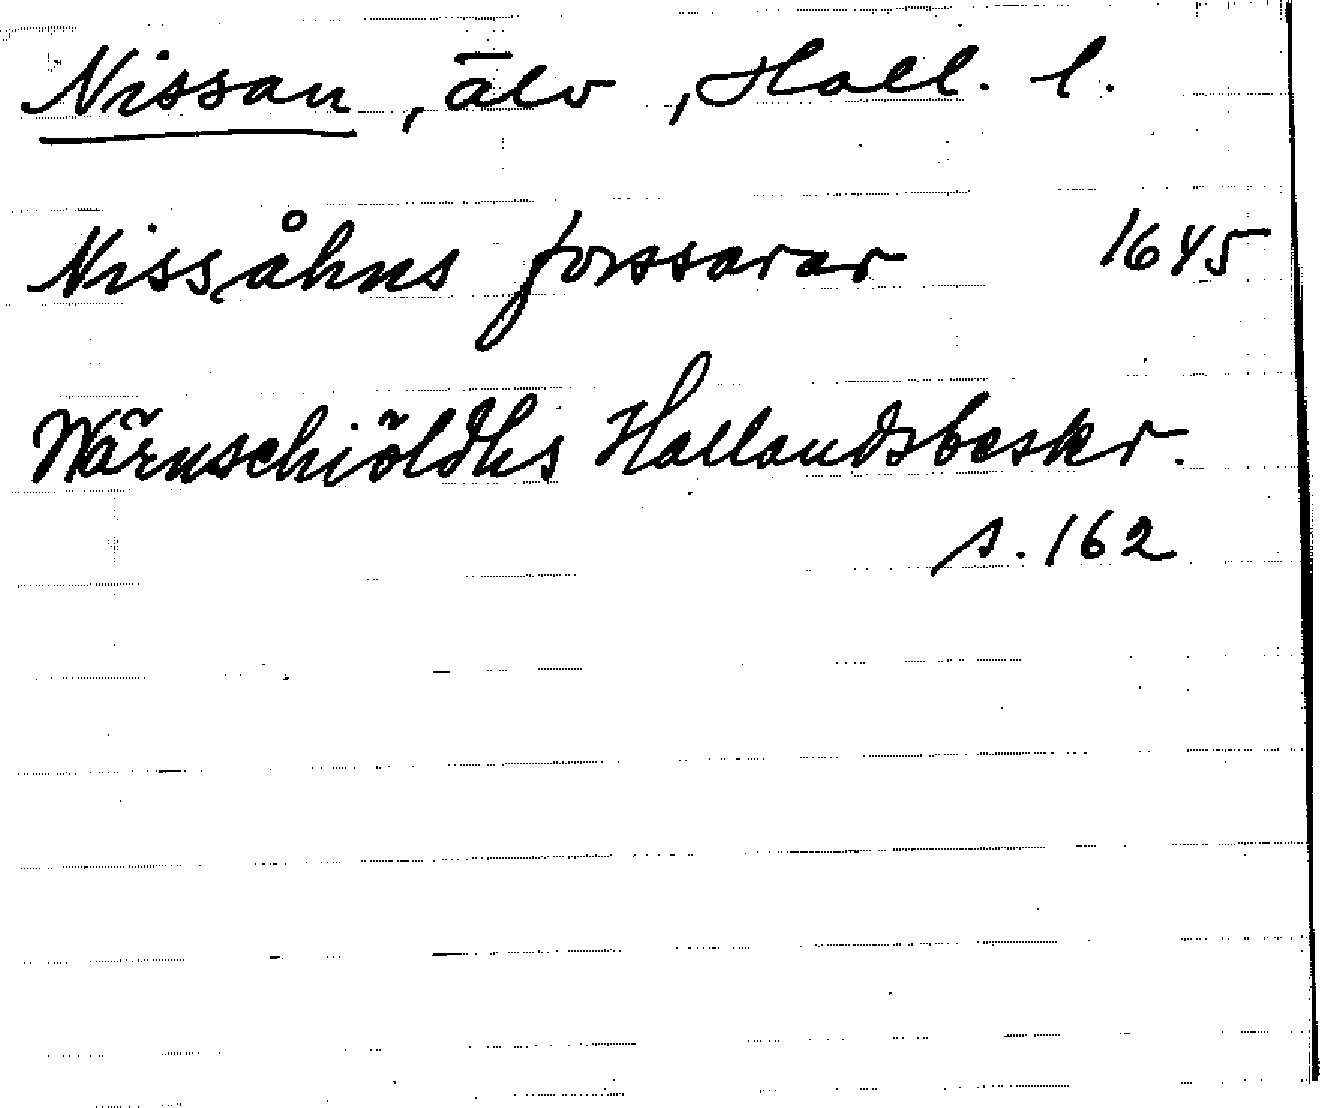 Nissan, älv, Hall. l.
Nissåhns forssarar 1645
Wärnschiöldhs Hallandsbeskr.
s. 162